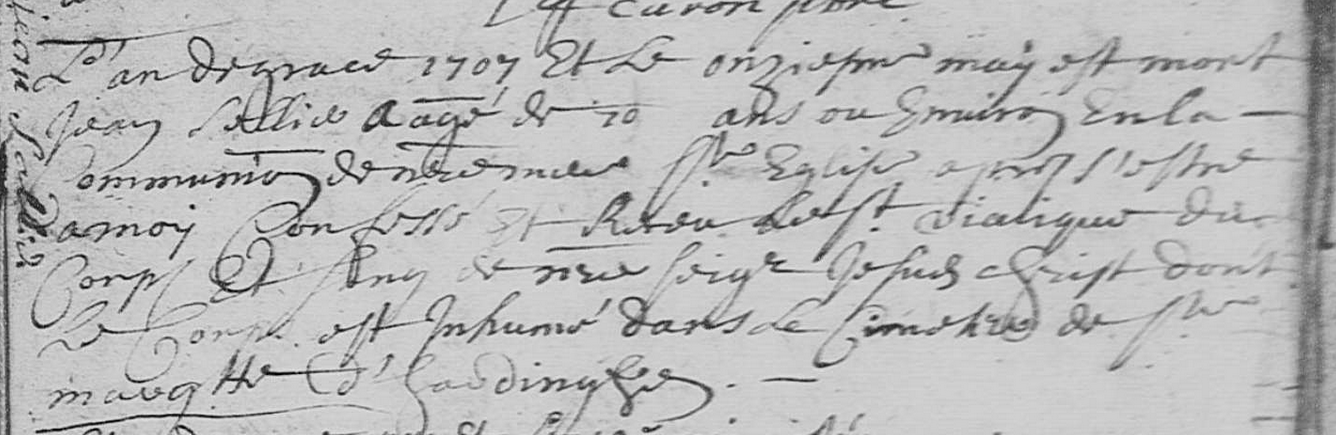 L'an de grace 1707 Et Le onziesme maÿ est mort
Jean Sallié aagé de 70 ans ou Environ En la
Communion de nre mere Ste Eglise apres s'estre
a moy Confessé Et Receu le st viatique du
Corps Et sang de nre seigr Jesus christ dont
Le Corps est Inhumé dans le Cimetiere de ste
margtte d'hardinghen